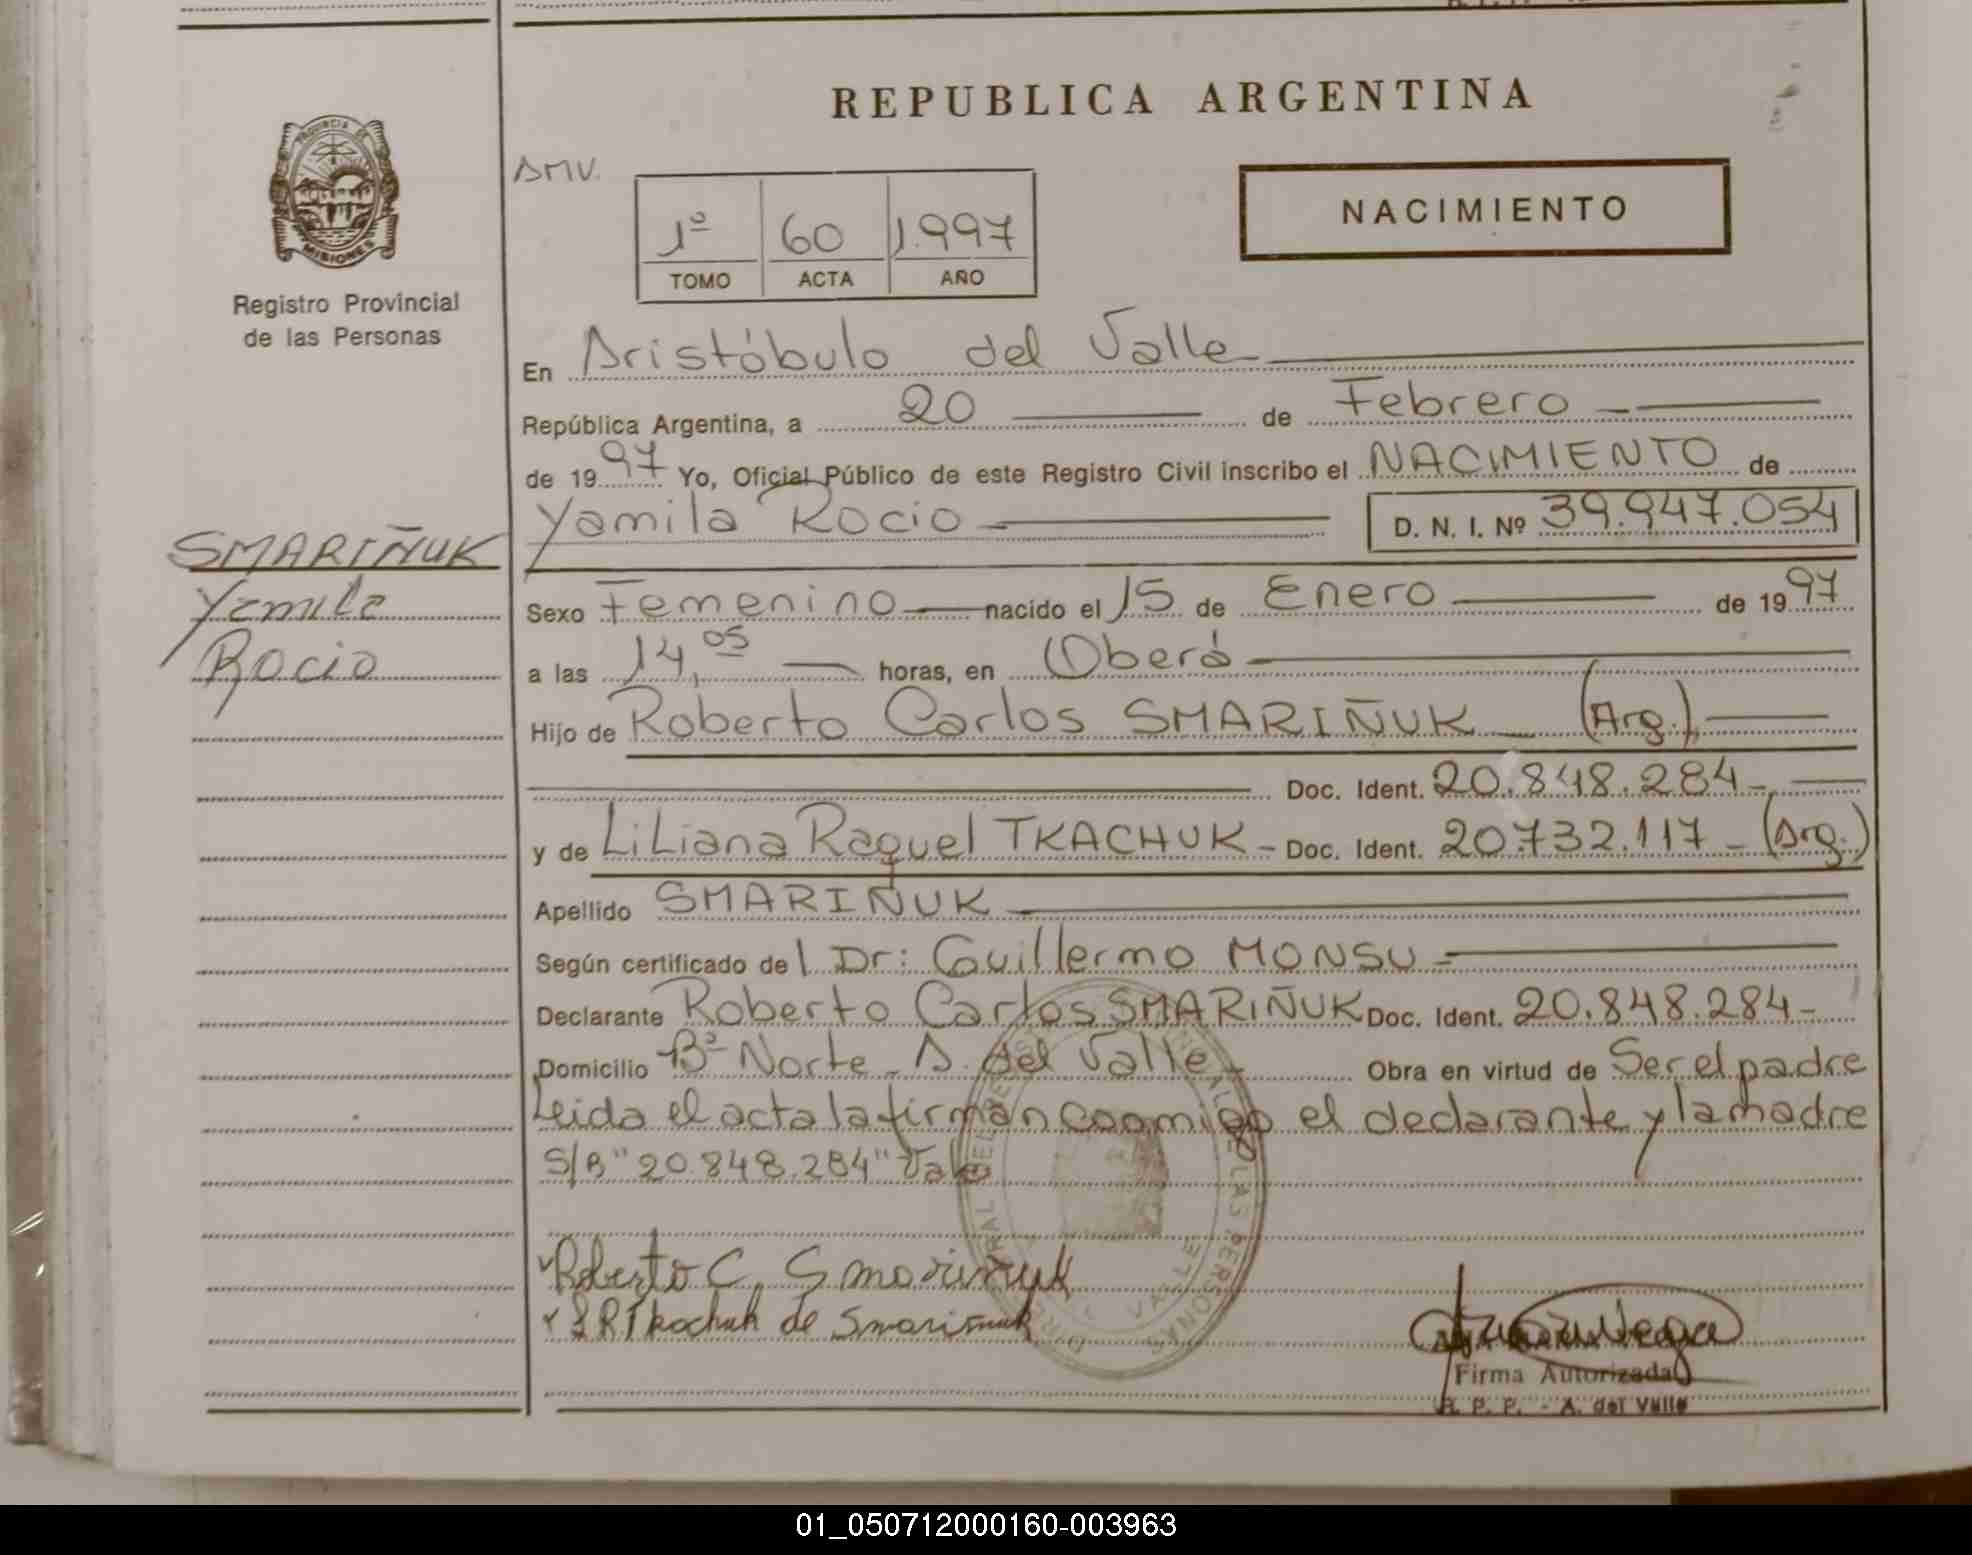 REPUBLICA ARGENTINA
PROVINCIA DE
MISIONES
Registro Provincial
de las Personas
AMV.
1º 60 1.997
TOMO ACTA AÑO
NACIMIENTO
En Aristóbulo del Valle
República Argentina, a 20 de Febrero
de 1997 Yo, Oficial Público de este Registro Civil inscribo el NACIMIENTO de
Yamila Rocio D. N. I. Nº 39.947.054
SMARIÑUK
Yamila
Rocio
Sexo Femenino nacido el 15 de Enero de 1997
a las 14,05 horas, en Oberá
Hijo de Roberto Carlos SMARIÑUK (Arg.)
Doc. Ident. 20.848.284-
y de LiLiana Raquel TKACHUK - Doc. Ident. 20.732.117 - (Arg.)
Apellido SMARIÑUK
Según certificado del Dr: Guillermo MONSU
Declarante Roberto Carlos SMARIÑUK Doc. Ident. 20.848.284-
Domicilio Bº Norte - A. del Valle Obra en virtud de Ser el padre
Leida el acta la firman conmigo el declarante y la madre
S/B "20.848.284" Vale
Roberto C. Smariñuk
L R Tkachuk de Smariñuk
Firma Autorizada
R. P. P. - A. del Valle
01_050712000160-003963